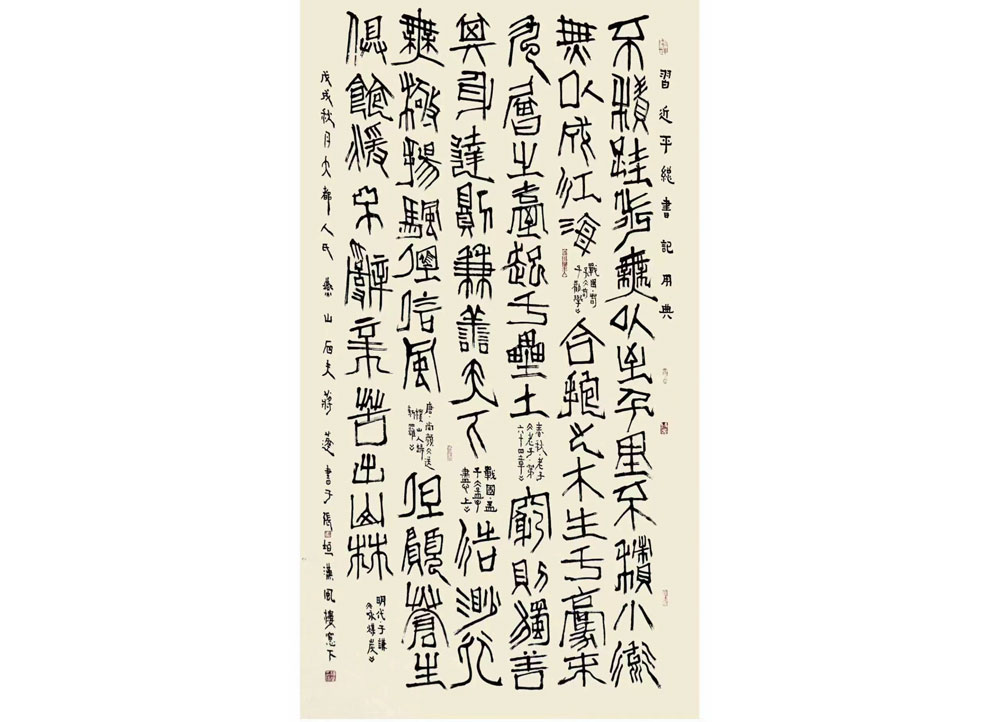 習近平總書記用典
不積跬步無以至千里不積小流
無以成江海
戰國·荀
子《荀
子·勸學》
合抱之木生于毫末
九層之臺起于壘土
春秋·老子
《老子·第
六十四章》
窮則獨善
其身達則兼善天下
戰國·孟
子《孟子·
盡心上》
浩渺行
無極揚颿但信風
唐·尚顏《送
樸山人歸
新羅》
但願蒼生
俱飽暖不辭辛苦出山林
明代于謙
《咏煤炭》
戊戌秋月大都人氏燕山石夫蔣蓬書于張垣漢風樓窗下